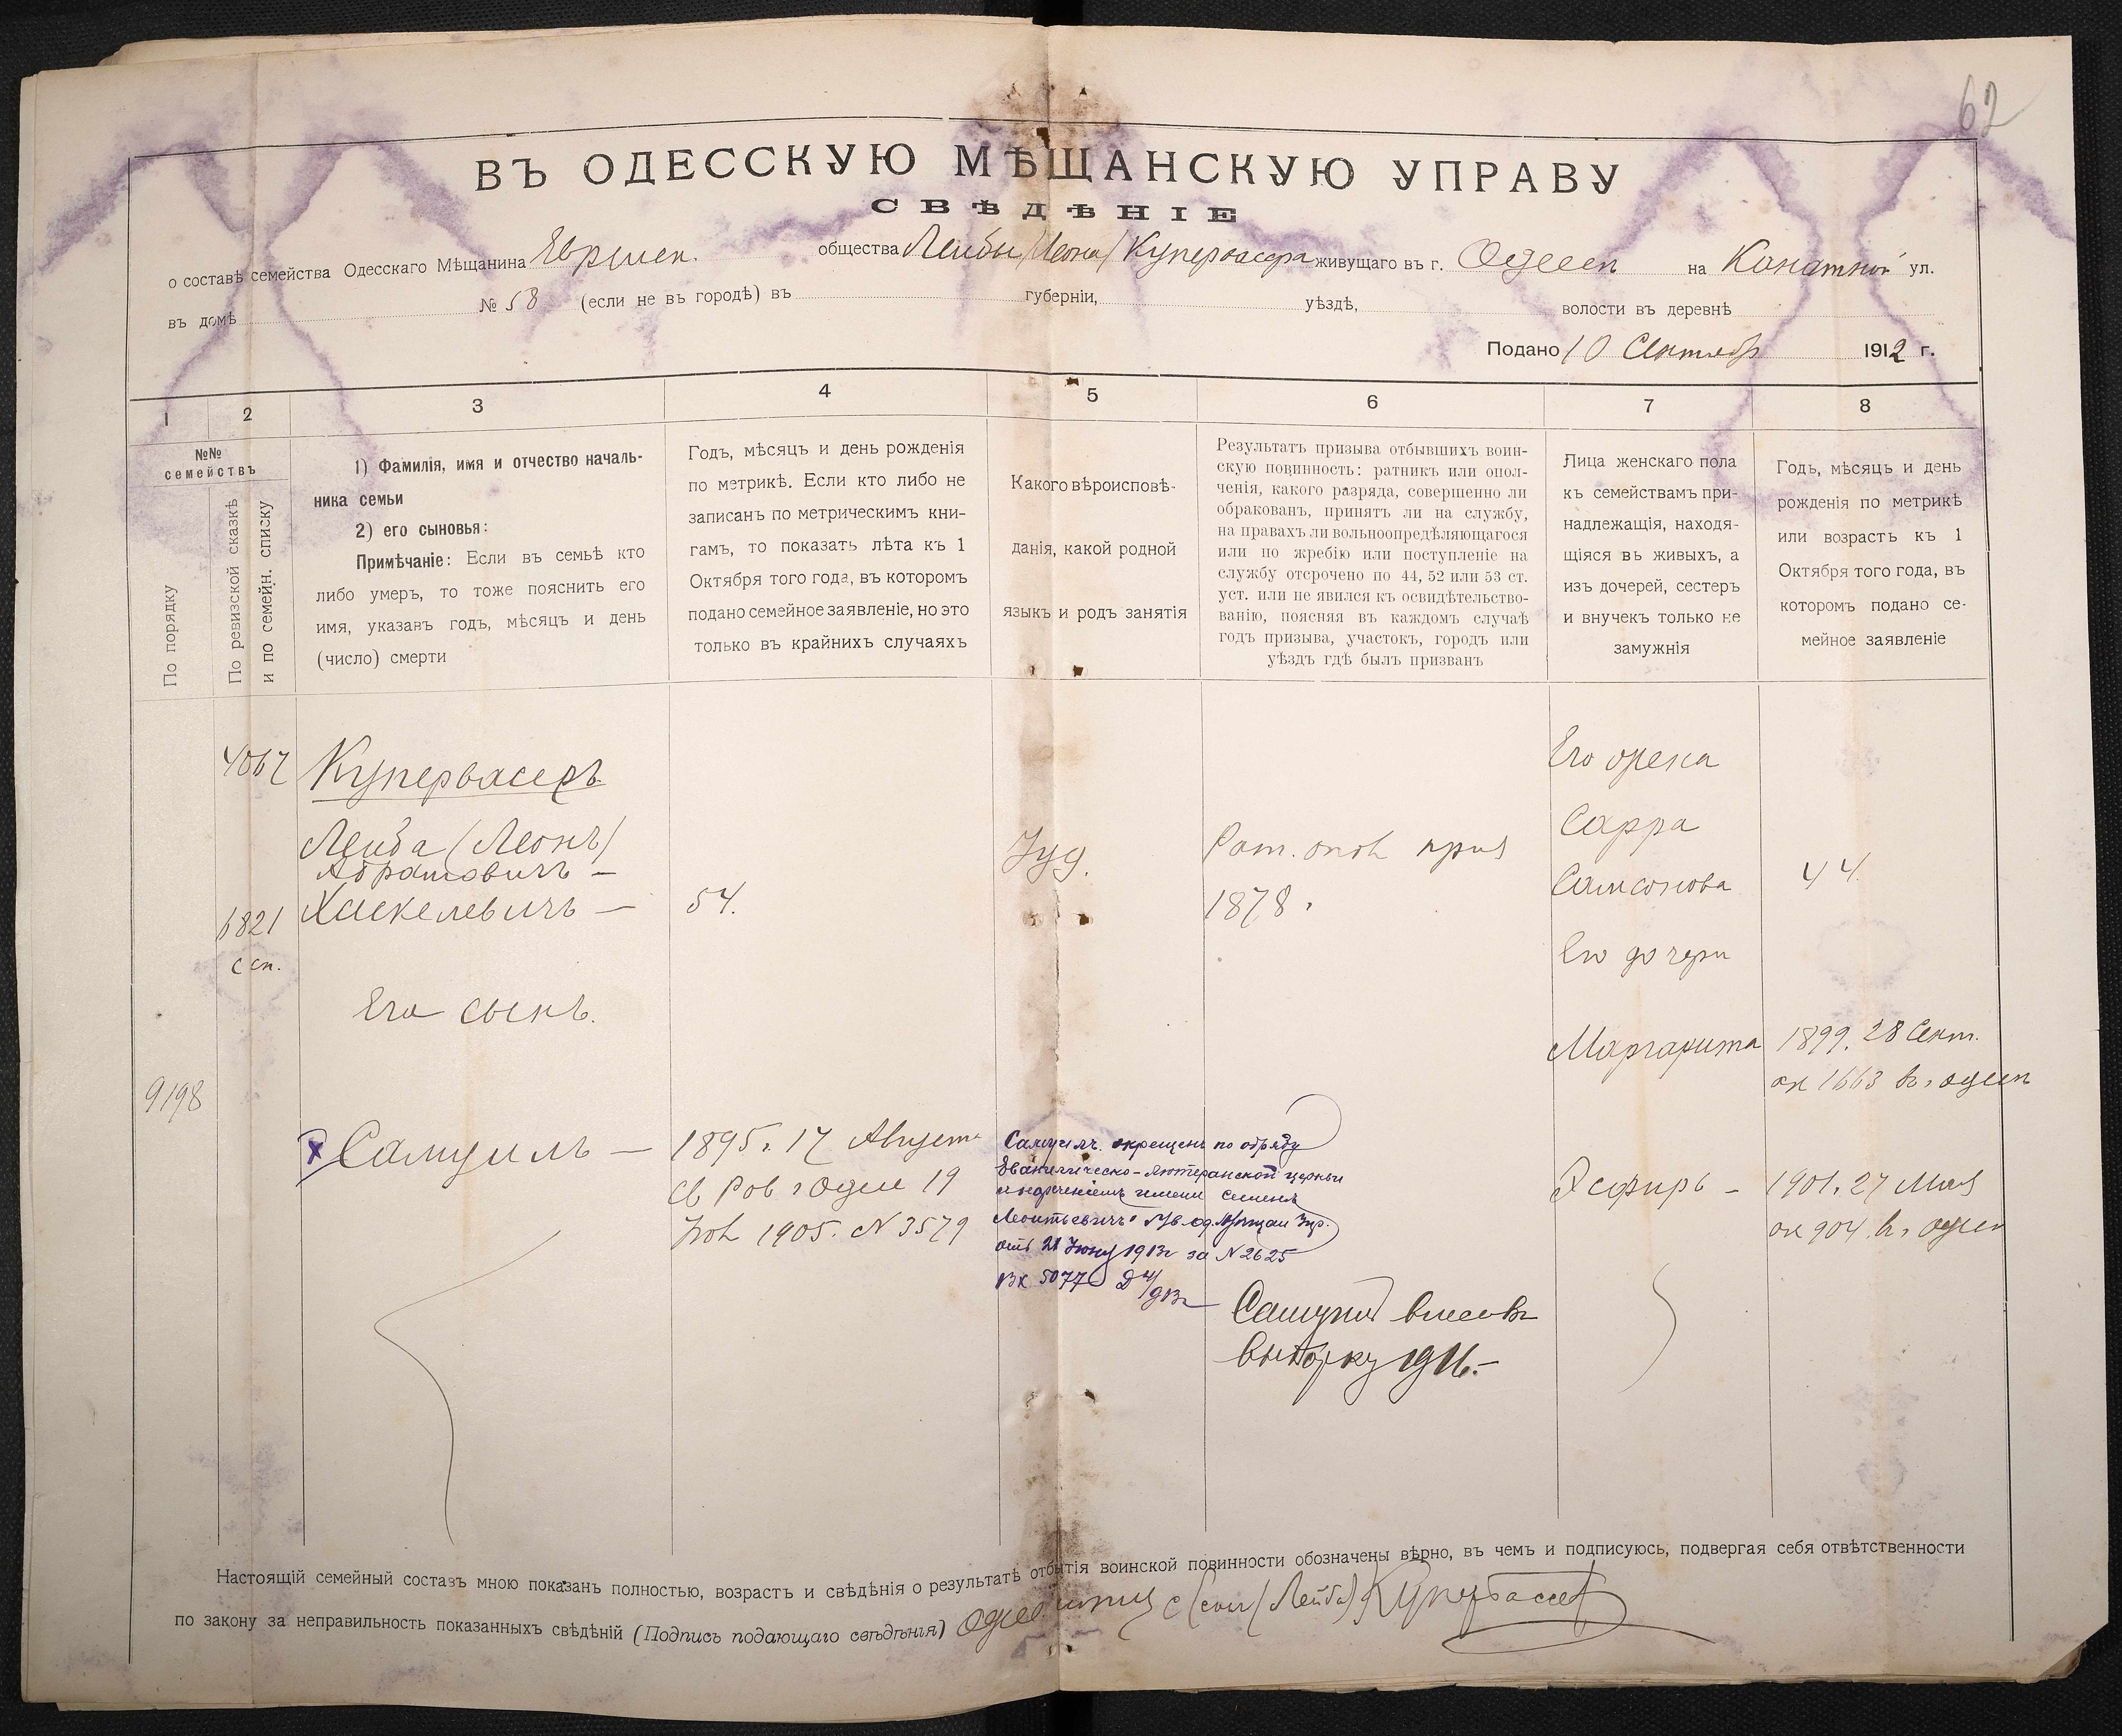 62
ВЪ ОДЕССКУЮ МѢЩАНСКУЮ УПРАВУ
СВѢДѢНІЕ
о составѣ семейства Одесскаго Мѣщанина Еврейск. общества Лейбы /Леона/ Купервассера живущаго въ г. Одессѣ на Канатной ул.
въ домѣ № 58 (если не въ городѣ) въ губерніи, уѣздѣ, волости въ деревнѣ
Подано 10 Сентября 1912 г.
1 2 3 4 5 6 7 8
№№ семействъ
По порядку
По ревизской сказкѣ и по семейн. списку
1) Фамилія, имя и отчество началь-
ника семьи
2) его сыновья:
Примѣчаніе: Если въ семьѣ кто
либо умеръ, то тоже пояснить его
имя, указавъ годъ, мѣсяцъ и день
(число) смерти
Годъ, мѣсяцъ и день рожденія
по метрикѣ. Если кто либо не
записанъ по метрическимъ кни-
гамъ, то показать лѣта къ 1
Октября того года, въ которомъ
подано семейное заявленіе, но это
только въ крайнихъ случаяхъ
Какого вѣроисповѣ-
данія, какой родной
языкъ и родъ занятія
Результатъ призыва отбывшихъ воин-
скую повинность: ратникъ или опол-
ченія, какого разряда, совершенно ли
обракованъ, принятъ ли на службу,
на правахъ ли вольноопредѣляющагося
или по жребію или поступленіе на
службу отсрочено по 44, 52 или 53 ст.
уст. или не явился къ освидѣтельство-
ванію, поясняя въ каждомъ случаѣ
годъ призыва, участокъ, городъ или
уѣздъ гдѣ былъ призванъ
Лица женскаго пола
къ семействамъ при-
надлежащія, находя-
щіяся въ живыхъ, а
изъ дочерей, сестеръ
и внучекъ только не
замужнія
Годъ, мѣсяцъ и день
рожденія по метрикѣ
или возрастъ къ 1
Октября того года, въ
которомъ подано се-
мейное заявленіе
4067 Купервасеръ
Лейба (Леонъ)
Абрамовичъ —
Хаскелевичъ — 54.
6821
с сп.
Іуд.
Рат. опол приз
1878.
Его жена
Сарра
Самсонова 44.
Его дочери
Маргарита 1899. 28 Сент.
ак 1663 въ Одесѣ
Эсфирь — 1901. 27 Мая
ак 904. въ Одесѣ
Его сынъ.
9198
Самуилъ — 1895. 17 Августа
1905. N 3579
Самуилъ окрещенъ по обряду
Евангелическо-Лютеранской церкви
с нареченіемъ имени Семенъ
Леонтьевичъ
отъ 21 Іюня 1913г за N 2625
Вх 5077
Самуилъ внесенъ
выборку 1916.—
Настоящій семейный составъ мною показанъ полностью, возрастъ и свѣдѣнія о результатѣ отбытія воинской повинности обозначены вѣрно, въ чемъ и подписуюсь, подвергая себя отвѣтственности
по закону за неправильность показанныхъ свѣдѣній (Подпись подающаго свѣдѣнія) (Лейба) Купервассеръ